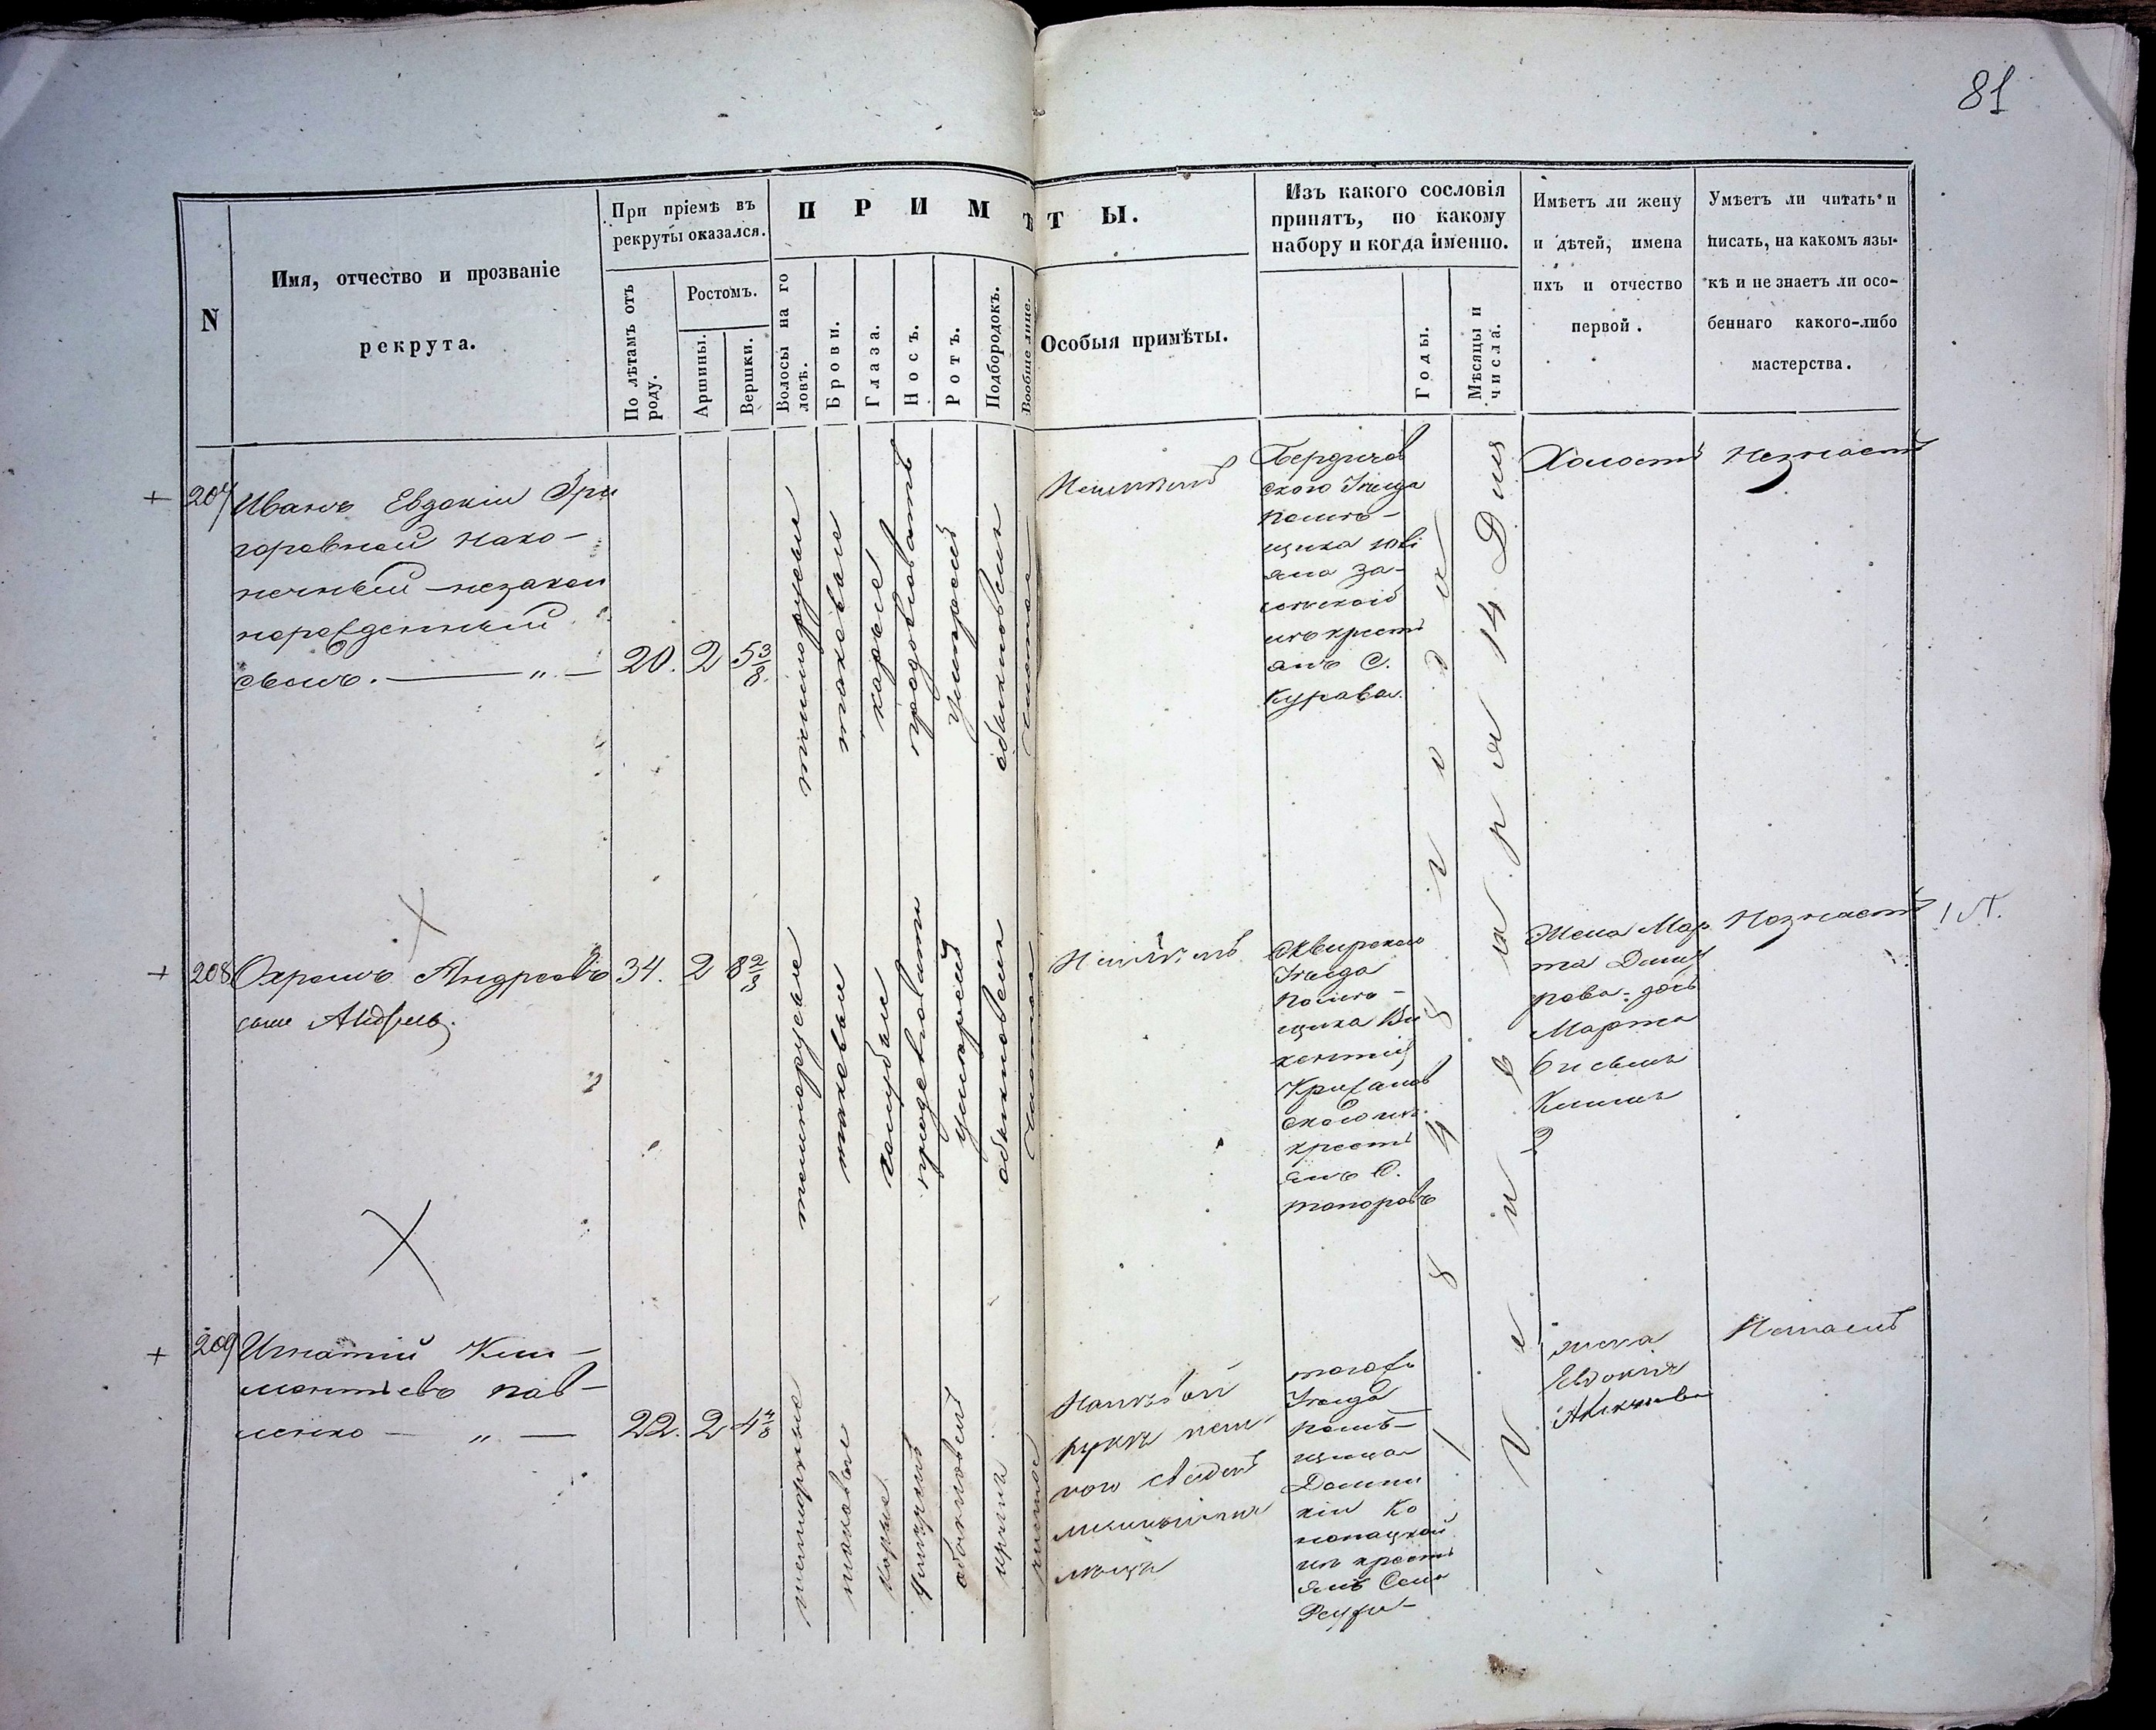 81
N
Имя, отчество и прозваніе
рекрута.
При пріемѣ въ
рекруты оказался.
По лѣтамъ отъ
роду.
Ростомъ.
Аршины.
Вершки.
ПРИМѢТЫ.
Волосы на го
ловѣ.
Брови.
Глаза.
Носъ.
Ротъ.
Подбородокъ.
Вообще лице.
Особыя примѣты.
Изъ какого сословія
принятъ, по какому
набору и когда именно.
Годы.
Мѣсяцы и
числа.
Имѣетъ ли жену
и дѣтей, имена
ихъ и отчество
первой.
Умѣетъ ли читать и
писать, на какомъ язы-
кѣ и не знаетъ ли осо-
беннаго какого-либо
мастерства.
+ 207
Иванъ Евдокіи Гри
горовной Нако-
нечный незакон
норожденный
сынъ. — „ —
20. 2 5 3/8
темнорусые
таковые
каріе
продолговатъ
умѣрений
обыкновенъ
чистое
Неимѣетъ
Бердичев
ского Уѣзда
помѣ-
щика
за-
изъ крести
янъ С.
Курава.
Холостъ
Незнаетъ
+ 208
Охремъ Андреевъ
сынъ Андрей.
34. 2 8 2/3
темнорусые
таковые
голубые
продолговатъ
умѣрений
обыкновенъ
чистое
Неимѣетъ
Сквирского
Уѣзда
помѣ-
щика Ви
кентія
ского изъ
крести
янъ С.
Топоровъ
Жена Мар
та
рова дочь
Марта
сынъ
Незнаетъ
+ 209
Игнатій Кли-
ментіевъ Пав-
ленко — „ —
22. 2 4 4/8
темнорусые
таковые
каріе
умѣренъ
обыкновенъ
чистое
На лѣвой
рукѣ
Уѣзда
помѣ-
щицы
Домини
кіи Ко
нопацкой
изъ крести
янъ Села
жена
Евдокія
Незнаетъ
185 года
Генваря 14 Дня